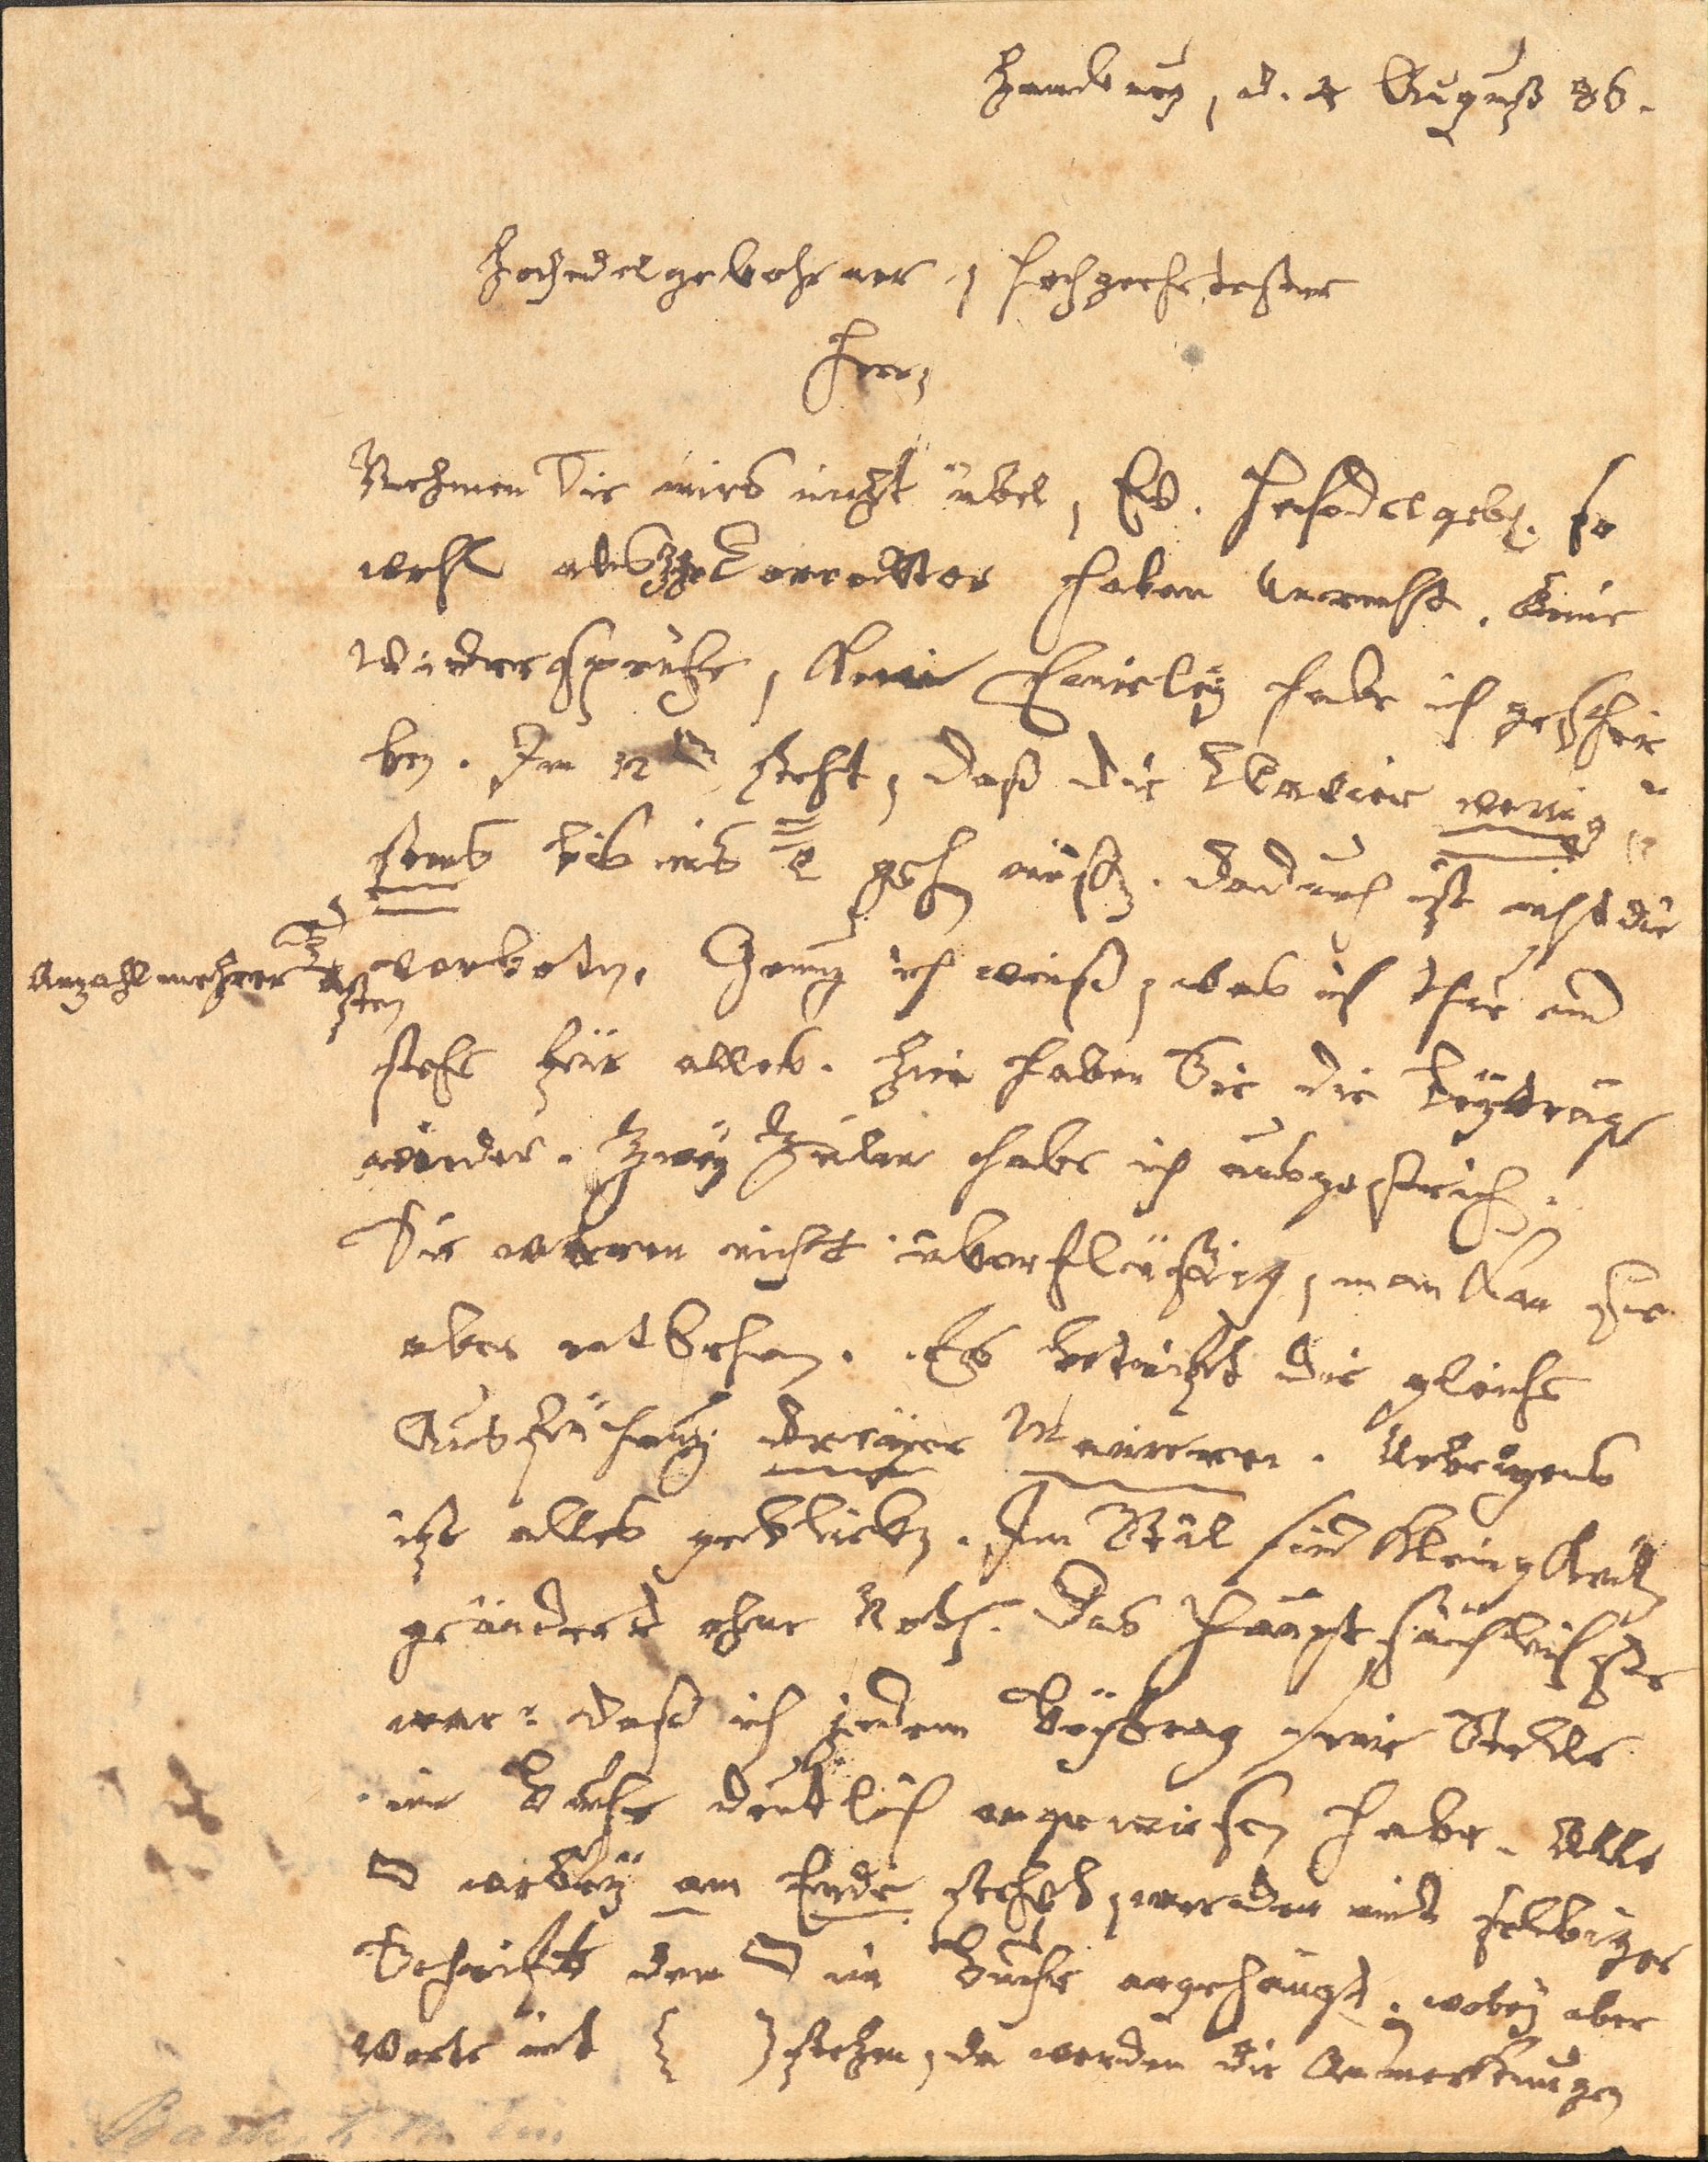 Hamburg, d. 4 August 86.
Hochedelgebohrner, hochgeehrtester
Herr,
Nehmen Sie mirs nicht übel, Ew. Hochedelgeb. so
wohl als H. Correcktor haben Unrecht. Keine
Wiedersprüche, kein Einerley habe ich geschrie
ben. Im 12ten steht, daß die Claviere wenig=
stens bis ins e gehen müßen. Dadurch ist nicht die
Anzahl mehrerer Tasten
verboten. Genug ich weiß, was ich thue und
stehe für alles. Hier haben Sie die Beyträge
wieder. Zwey Zeilen habe ich ausgestrichen.
Sie waren nicht überflüßig, man kan sie
aber entbehren. Es betrift die gleiche
Ausführung dreyer Manieren. Uebrigens
ist alles geblieben. Im Stil sind Kleinigkeiten
geändert ohne Noth. Das hauptsächlichste
war: daß ich jedem Beytrag seine Stelle
im Buche deutlich angewiesen habe. Alle
§ wobey am Ende steht, werden mit selbiger
Schrifft den § im Buche angehängt; wobey aber
Worte mit { } stehen, da werden die Anmerkungen